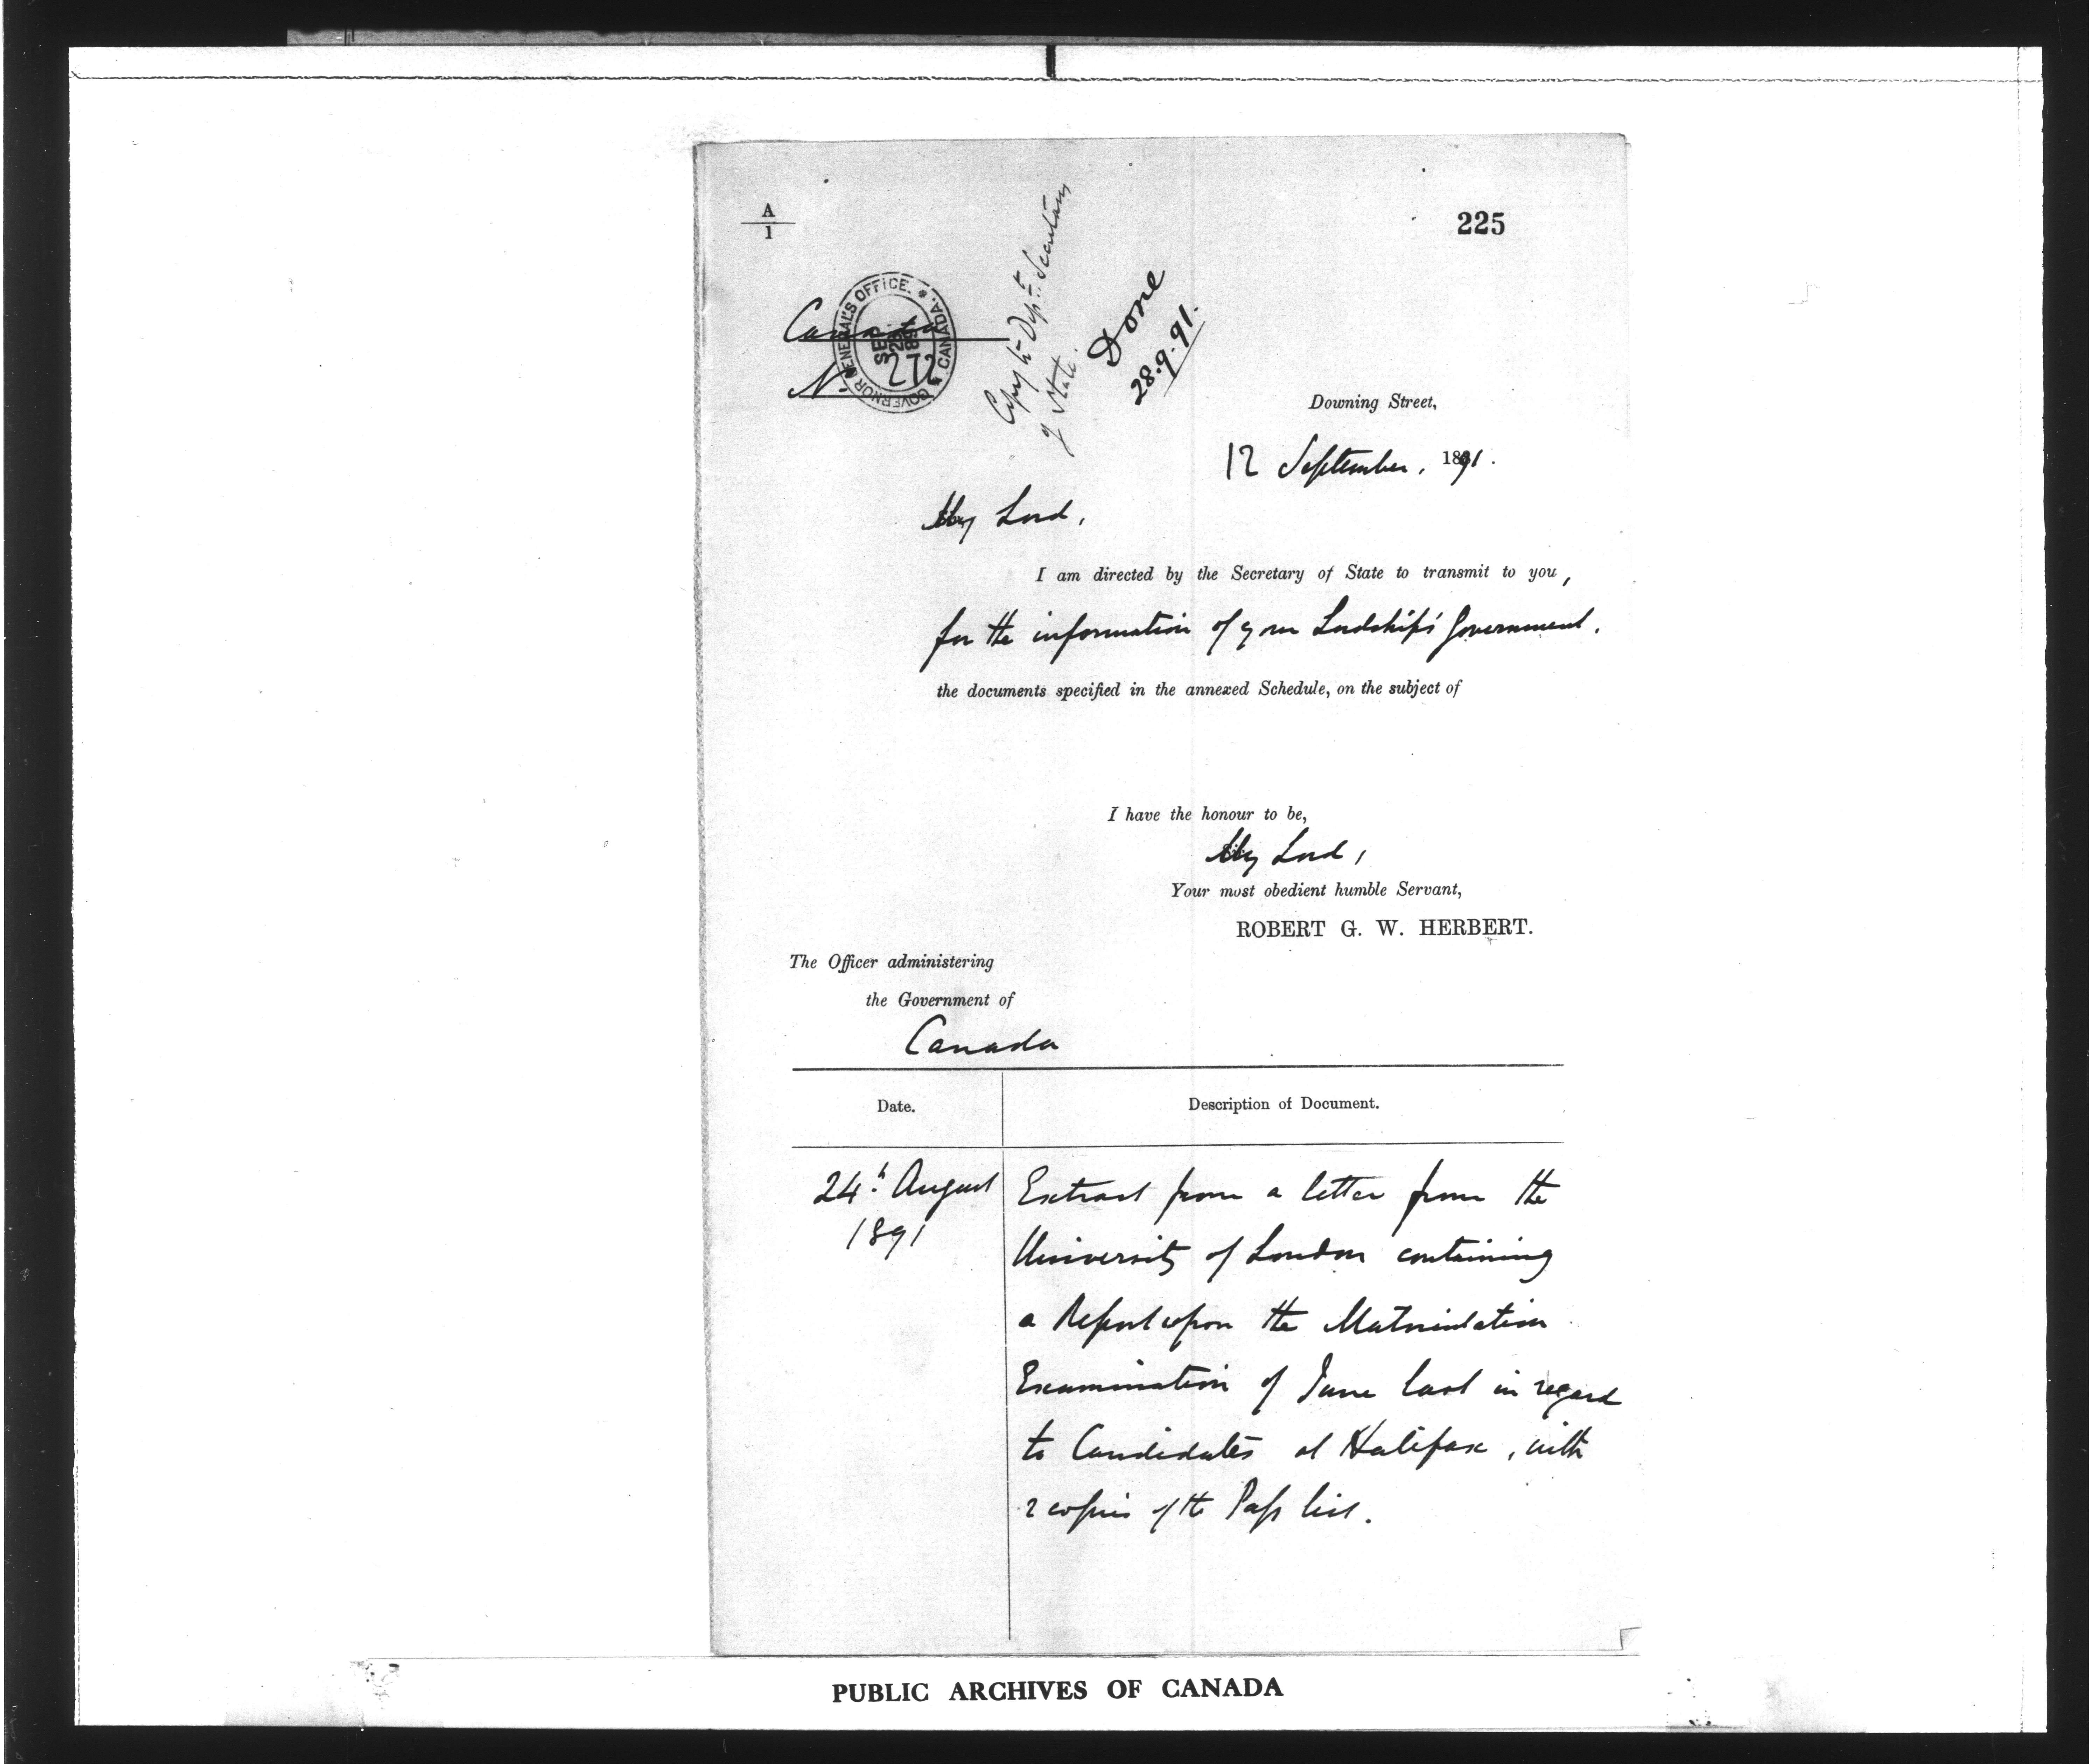 A
1
225
GOVERNOR GENERAL'S OFFICE. * CANADA. *
SEP
1891
Canada
No 272
Copy to Dept. Secretary
of State.
Done
28.9.91.
Downing Street,
12 September, 1891.
My Lord,
I am directed by the Secretary of State to transmit to you,
for the information of your Lordship's Government.
the documents specified in the annexed Schedule, on the subject of
I have the honour to be,
My Lord,
Your most obedient humble Servant,
ROBERT G. W. HERBERT.
The Officer administering
the Government of
Canada
Date.
Description of Document.
24th August
1891
Extract from a letter from the
University of London containing
a Report upon the Matriculation
Examination of June last in regard
to Candidates at Halifax, with
2 copies of the Pass list.
PUBLIC ARCHIVES OF CANADA